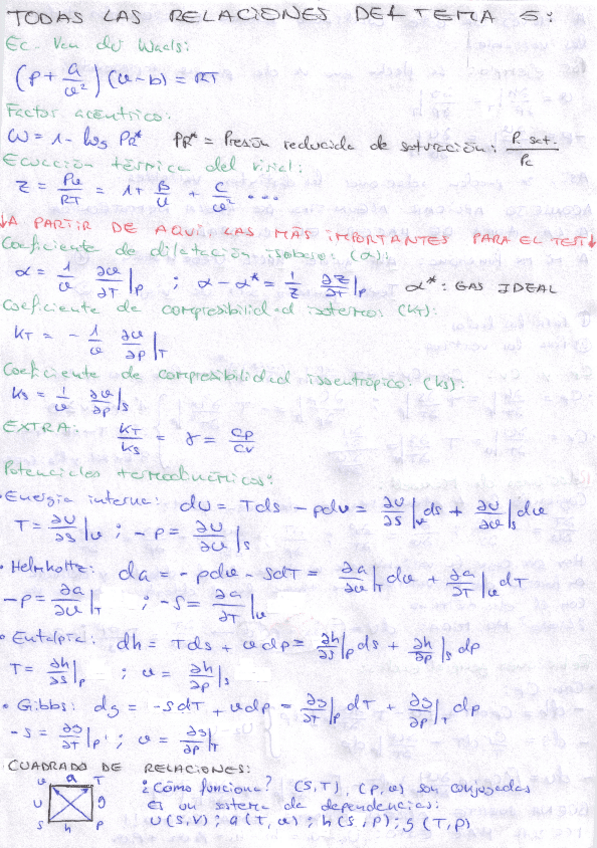 TODAS LAS RELACIONES DEL TEMA 5:
Ec. Van der Waals:
(p + a/v²)(v-b) = RT
Factor acéntrico:
ω = 1 - log PR* PR* = Presión reducida de saturación: P sat./Pc
Ecuación térmica del virial:
Z = Pv/RT = 1 + B/v + C/v² ...
↓A PARTIR DE AQUÍ LAS MÁS IMPORTANTES PARA EL TEST↓
Coeficiente de dilatación isobaro: (α):
α = 1/v ∂v/∂T|p ; α - α* = 1/Z ∂Z/∂T|p α*: GAS IDEAL
Coeficiente de compresibilidad isotermo: (KT):
KT = - 1/v ∂v/∂p|T
Coeficiente de compresibilidad isoentrópico: (Ks):
Ks = 1/v ∂v/∂p|s
EXTRA: KT/Ks = γ = Cp/Cv
Potenciales termodinámicos:
• Energía interna: du = Tds - pdv = ∂u/∂s|v ds + ∂u/∂v|s dv
T = ∂u/∂s|v ; -p = ∂u/∂v|s
• Helmholtz: da = -pdv - sdT = ∂a/∂v|T dv + ∂a/∂T|v dT
-p = ∂a/∂v|T ; -s = ∂a/∂T|v
• Entalpía: dh = Tds + vdp = ∂h/∂s|p ds + ∂h/∂p|s dp
T = ∂h/∂s|p ; v = ∂h/∂p|s
• Gibbs: dg = -sdT + vdp = ∂g/∂T|p dT + ∂g/∂p|T dp
-s = ∂g/∂T|p ; v = ∂g/∂p|T
CUADRADO DE RELACIONES:
v a T
u g
s h p
¿Cómo funciona? (S,T), (p,v) son conjugadas
Es un sistema de dependencias:
u(s,v) ; a(T,v) ; h(s,p) ; g(T,p)